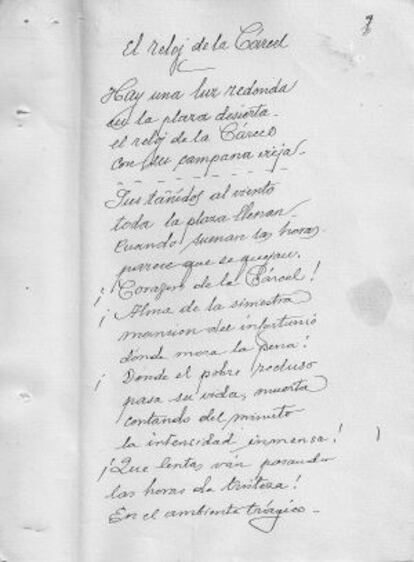 El reloj de la Cárcel
Hay una luz redonda
en la plaza desierta.
el reloj de la Cárcel
con su campana vieja.
Sus tañidos al viento
toda la plaza llenan.
Cuando suenan las horas.
parece que se quejan.
¡Corazon de la Cárcel!
¡Alma de la siniestra
mansion del infortunio
donde mora la pena!
¡Donde el pobre recluso
pasa su vida, muerta
contando del minuto
la intensidad inmensa!
¡Que lentas ván pasando
las horas de tristeza!
En el ambiente trágico.